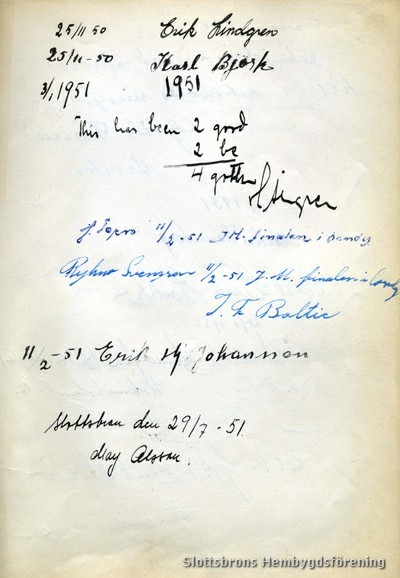 25/11 50 Erik Lindgren
25/11-50 Karl Björk
3/1 1951 1951
This has been 2 good
2 be
4 gotten
11/2-51 J.M. finalen i bandy
Ryhno Svensson 11/2-51 J.M. finalen i bandy
I.F. Baltic
11/2-51 Erik Hj Johansson
Slottsbron den 29/7-51.
May Olsson.
Slottsbrons Hembygdsförening